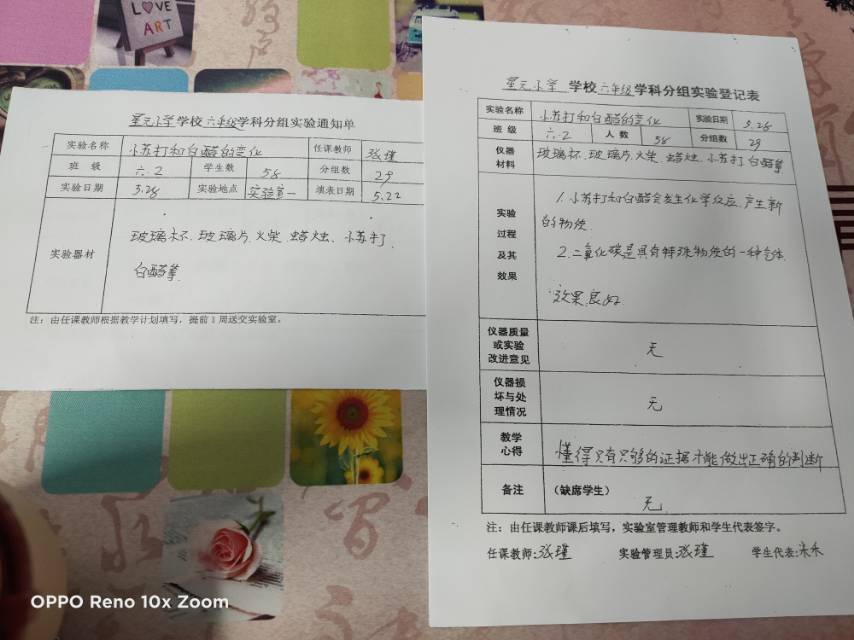 LOVE
ART
星元小学 学校 六年级 学科分组实验通知单
实验名称 小苏打和白醋的变化 任课教师 张瑾
班 级 六.2 学生数 58 分组数 29
实验日期 3.28 实验地点 实验室一 填表日期 5.22
实验器材
玻璃杯、玻璃片、火柴、蜡烛、小苏打、
白醋等
注:由任课教师根据教学计划填写,提前1周送交实验室。
星元小学 学校 六年级 学科分组实验登记表
实验名称 小苏打和白醋的变化 实验日期 5.28
班 级 六.2 人 数 58 分组数 29
仪器
材料
玻璃杯、玻璃片、火柴、蜡烛、小苏打、白醋等
实验
过程
及其
效果
1.小苏打和白醋会发生化学反应,产生新
的物质.
2.二氧化碳是具有特殊物质的一种气体.
效果良好
仪器质量
或实验
改进意见
无
仪器损
坏与处
理情况
无
教学
心得
懂得只有只够的证据才能做出正确的判断
备注
(缺席学生)
无
注:由任课教师课后填写,实验室管理教师和学生代表签字。
任课教师:张瑾 实验管理员:张瑾 学生代表:
OPPO Reno 10x Zoom